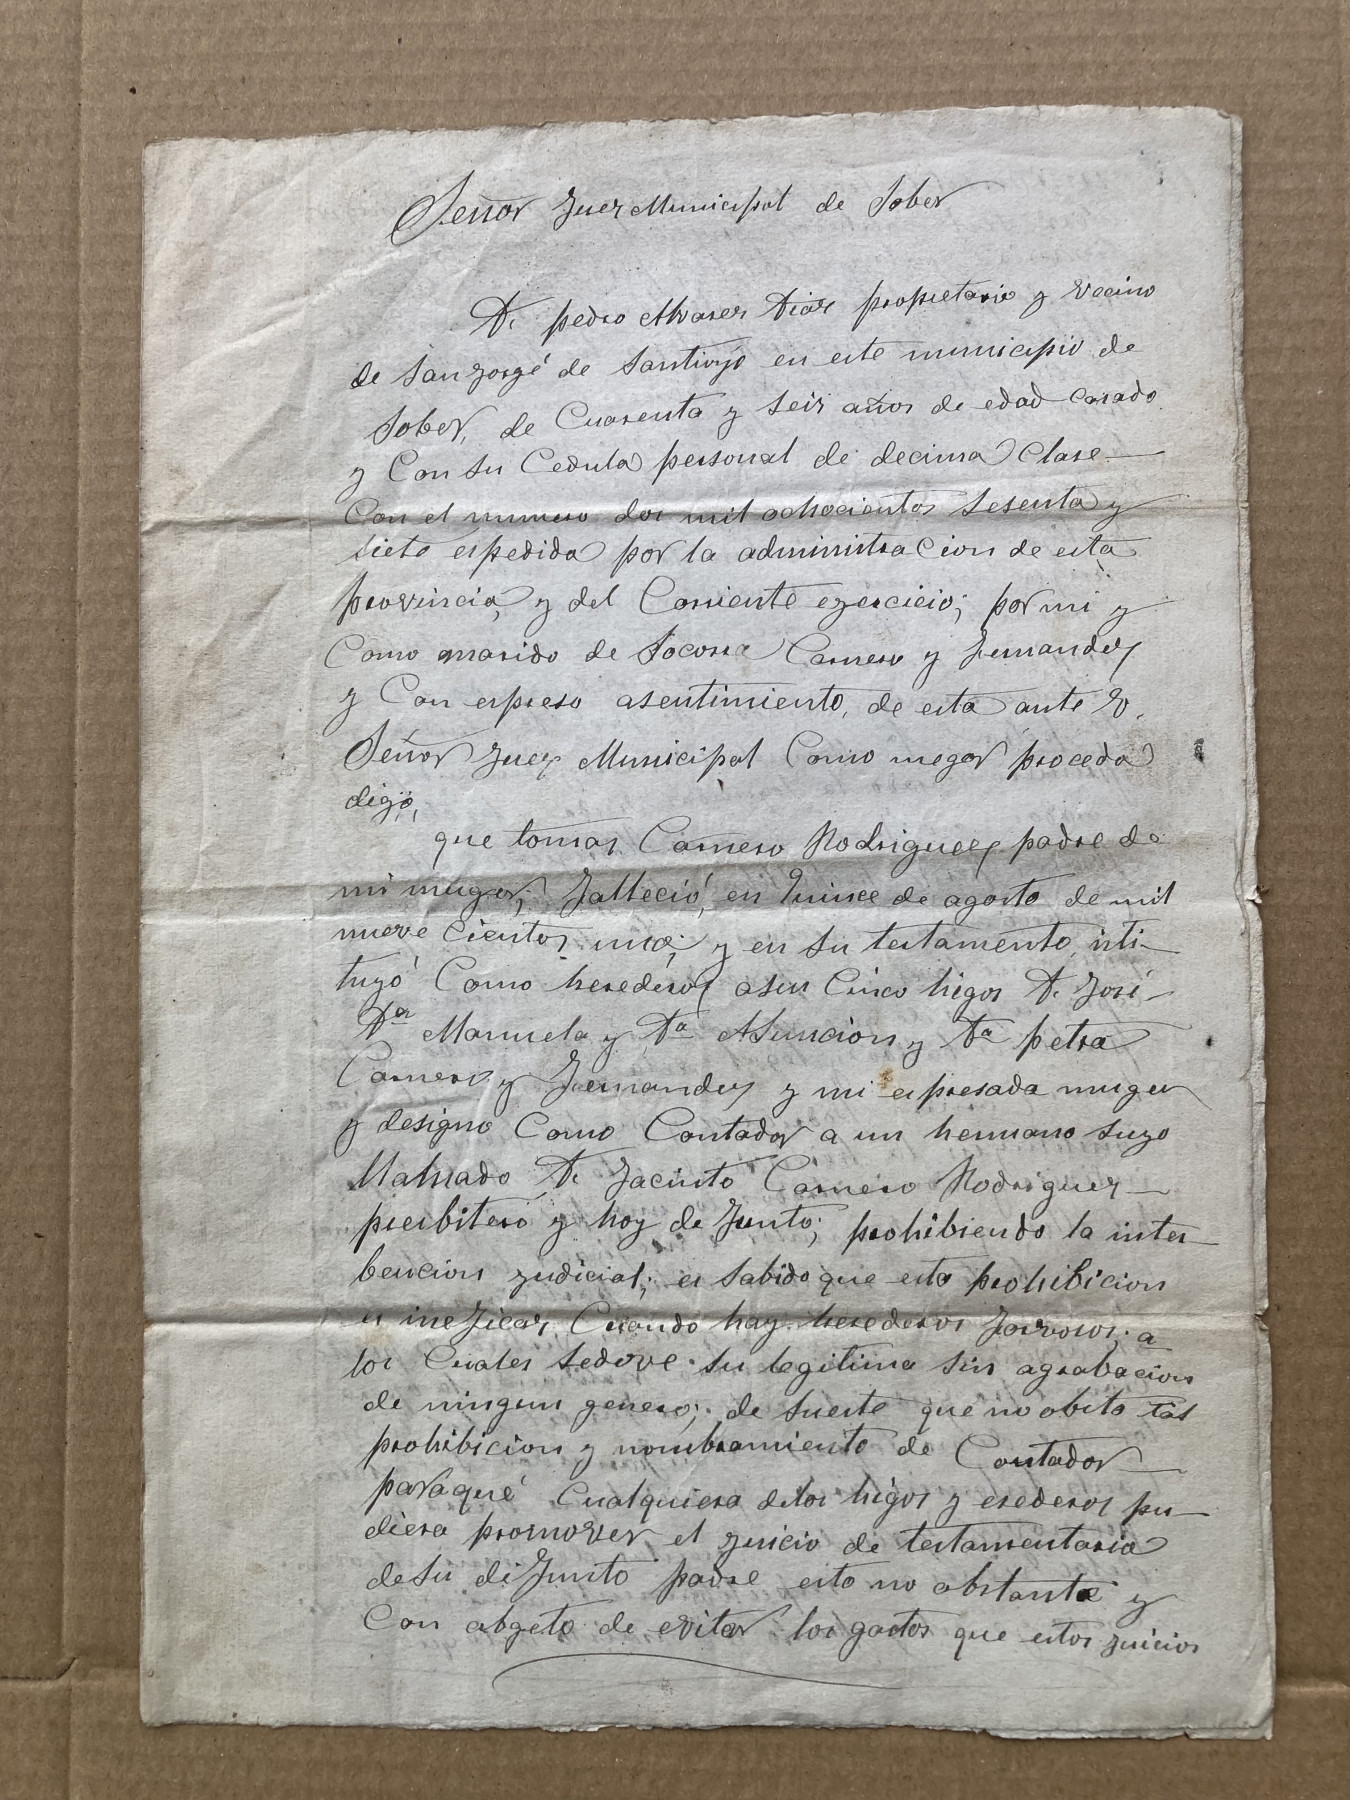 Señor Juez Municipal de Sober
D. pedro Alvarez Diaz propietario y vecino
de San Jorgé de Santiojo en este municipio de
Sober, de Cuarenta y seis años de edad casado
y Con su Cedula personal de decima Clase
Con el numero dos mil ochocientos sesenta y
siete espedida por la administracion de esta
provincia, y del Corriente egercicio; por mi y
Como marido de Socorra Carnero y Fernandez
y Con espreso asentimiento, de esta ante V.
Señor Juez Municipal Como megor proceda
digo,
que tomas Carnero Rodriguez padre de
mi muger, falleció, en quince de agosto de mil
nueve cientos uno; y en su testamento insti-
tuyó Como herederos a sus Cinco higos D. José
Dª Manuela y Dª Asuncion y Dª petra
Carnero y Fernandez y mi espresada muger
y designo Como Contador a un hermano suyo
llamado D. Jacinto Carnero Rodriguez
presbitero y hoy defunto; prohibiendo la inter
bencion judicial; es sabido que esta prohibicion
es ineficaz Cuando hay herederos forzosos; a
los Cuales se deve su legitima sin agrabacion
de ningun genero; de suerte que no obsta tal
prohibicion y nombramiento de Contador
para qué Cualquiera de los higos y erederos pu-
diera promover el juicio de testamentaria
de su difunto padre esto no obstante y
Con obgeto de evitar los gastos que estos juicios